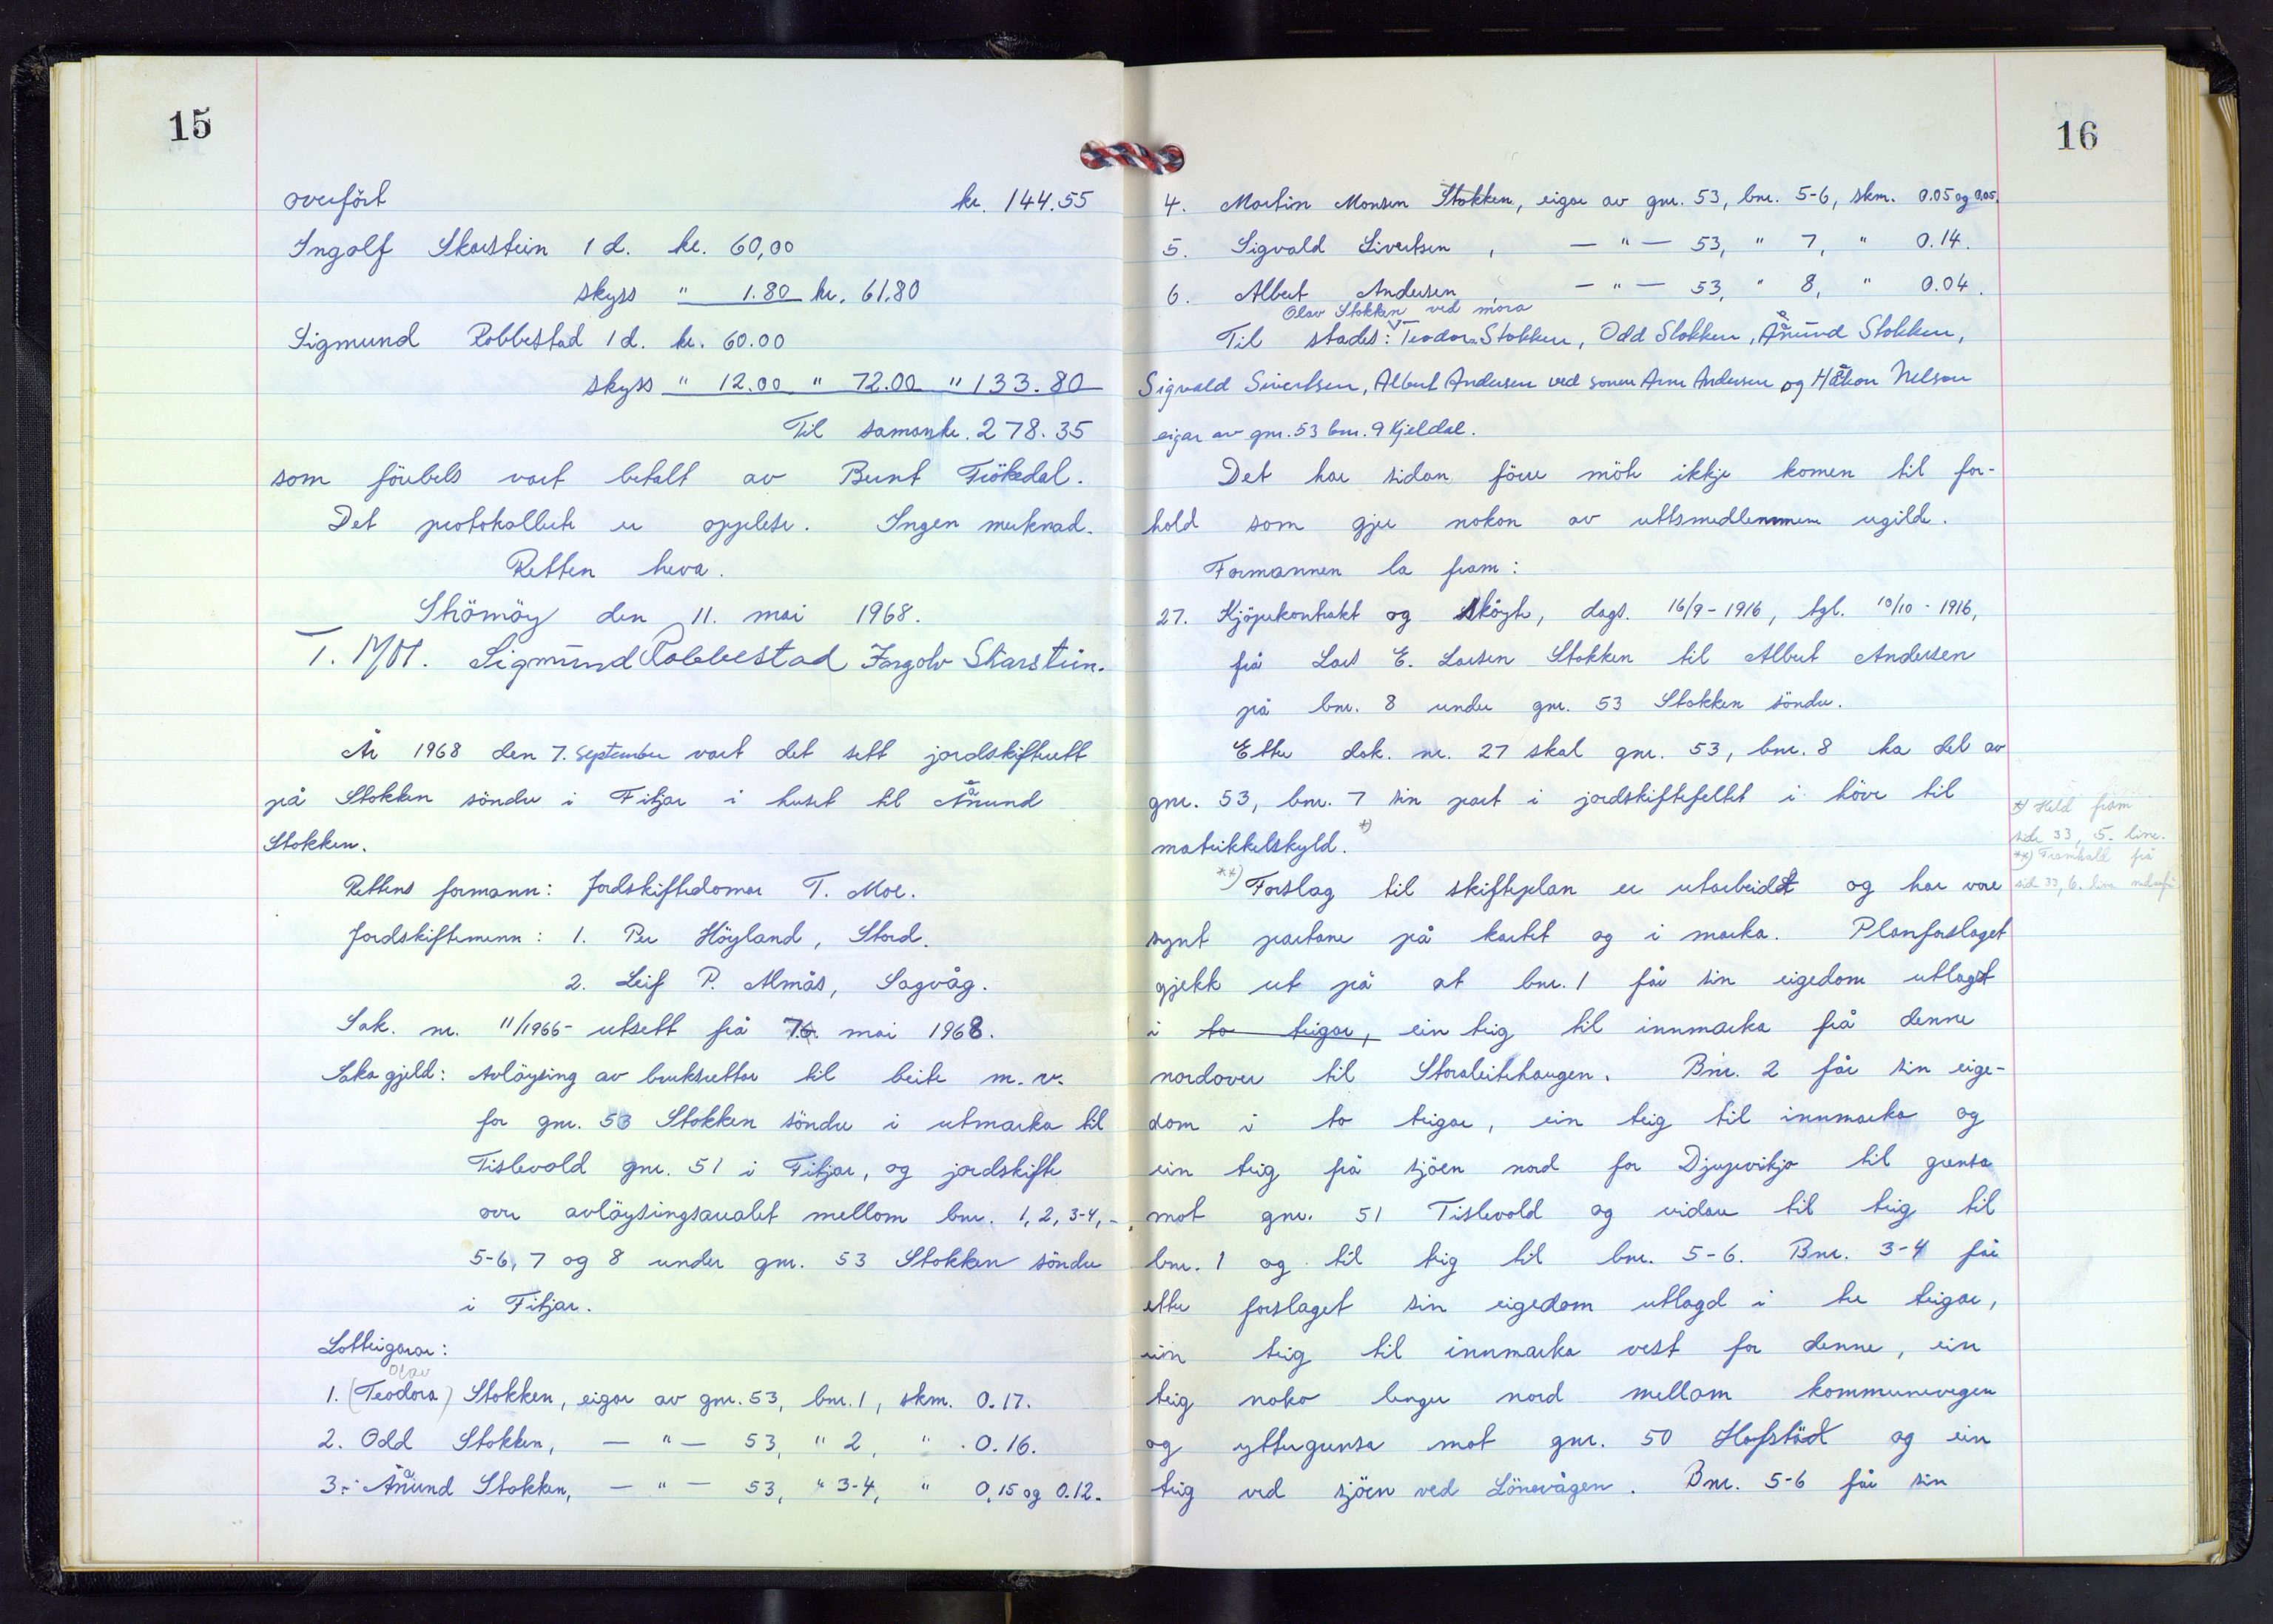 15
overfört kr. 144.55
Ingolf Skarstein 1 d. kr. 60,00
skyss " 1.80 kr. 61.80
Sigmund Robbestad 1 d. kr. 60.00
skyss " 12.00 " 72.00 " 133.80
Til saman kr. 278.35
som förebels vart betalt av Bernt Trökedal.
Det protokollerte er opplese. Ingen merknad.
Retten heva.
Strömöy den 11. mai 1968.
T. Moe. Sigmund Robbestad Ingolv Skarstein.
År 1968 den 7. September vart det sett jordskifterett
på Stokken söndre i Fitjar i huset til Ånund
Stokken.
Rettens formann: Jordskiftedomar T. Moe.
Jordskiftemenn: 1. Per Höyland, Stord.
2. Leif P. Almås, Sagvåg.
Sak. nr. 11/1966 - utsett frå 7. mai 1968.
Saka gjeld: Avlöysing av bruksrettar til beite m.v.
for gnr. 53 Stokken söndre i utmarka til
Tislevold gnr. 51 i Fitjar, og jordskifte
over avlöysingsarealet mellom bnr. 1, 2, 3-4, -
5-6, 7 og 8 under gnr. 53 Stokken söndre
i Fitjar.
Lotteigarar:
Olav
1. (Teodora) Stokken, eigar av gnr. 53, bnr. 1, skm. 0.17.
2. Odd Stokken, — " — 53, " 2, " 0.16.
3. Ånund Stokken, — " — 53, " 3-4, " 0,15 og 0.12.
16
4. Martin Monsen Stokken, eigar av gnr. 53, bnr. 5-6, skm. 0.05 og 0.05.
5. Sigvald Sivertsen, — " — 53, " 7, " 0.14.
6. Albert Andersen, — " — 53, " 8, " 0.04.
Olav Stokken ved mora
Til stades: Teodora Stokken, Odd Stokken, Ånund Stokken,
Sigvald Sivertsen, Albert Andersen ved sonen Arne Andersen og Håkon Nelson
eigar av gnr. 53 bnr. 9 Kjeldal.
Det har sidan förre möte ikkje komen til for-
hold som gjer nokon av rettsmedlemmene ugilde.
Formannen la fram:
27. Kjöpekontrakt og sköyte, dags. 16/9-1916, tgl. 10/10-1916,
frå Lars E. Larsen Stokken til Albert Andersen
på bnr. 8 under gnr. 53 Stokken söndre.
Etter dok. nr. 27 skal gnr. 53, bnr. 8 ha del av
gnr. 53, bnr. 7 sin part i jordskiftefeltet i höve til
matrikkelskyld. *)
*) Held fram
side 33, 5. line.
**) Framhald frå
side 33, 6. line
**) Forslag til skifteplan er utarbeidt og har vore
synt partane på kartet og i marka. Planforslaget
gjekk ut på at bnr. 1 får sin eigedom utlagt
i to teigar, ein teig til innmarka frå denne
nordover til Storaleitehaugen. Bnr. 2 får sin eige-
dom i to teigar, ein teig til innmarka og
ein teig frå sjöen nord for Djupevikjo til grensa
mot gnr. 51 Tislevold og vidare til teig til
bnr. 1 og til teig til bnr. 5-6. Bnr. 3-4 får
etter forslaget sin eigedom utlagd i tre teigar,
ein teig til innmarka vest for denne, ein
teig noko lenger nord mellom kommunevegen
og yttergrensa mot gnr. 50 Hafstöd og ein
teig ved sjöen ved Lönavågen. Bnr. 5-6 får sin